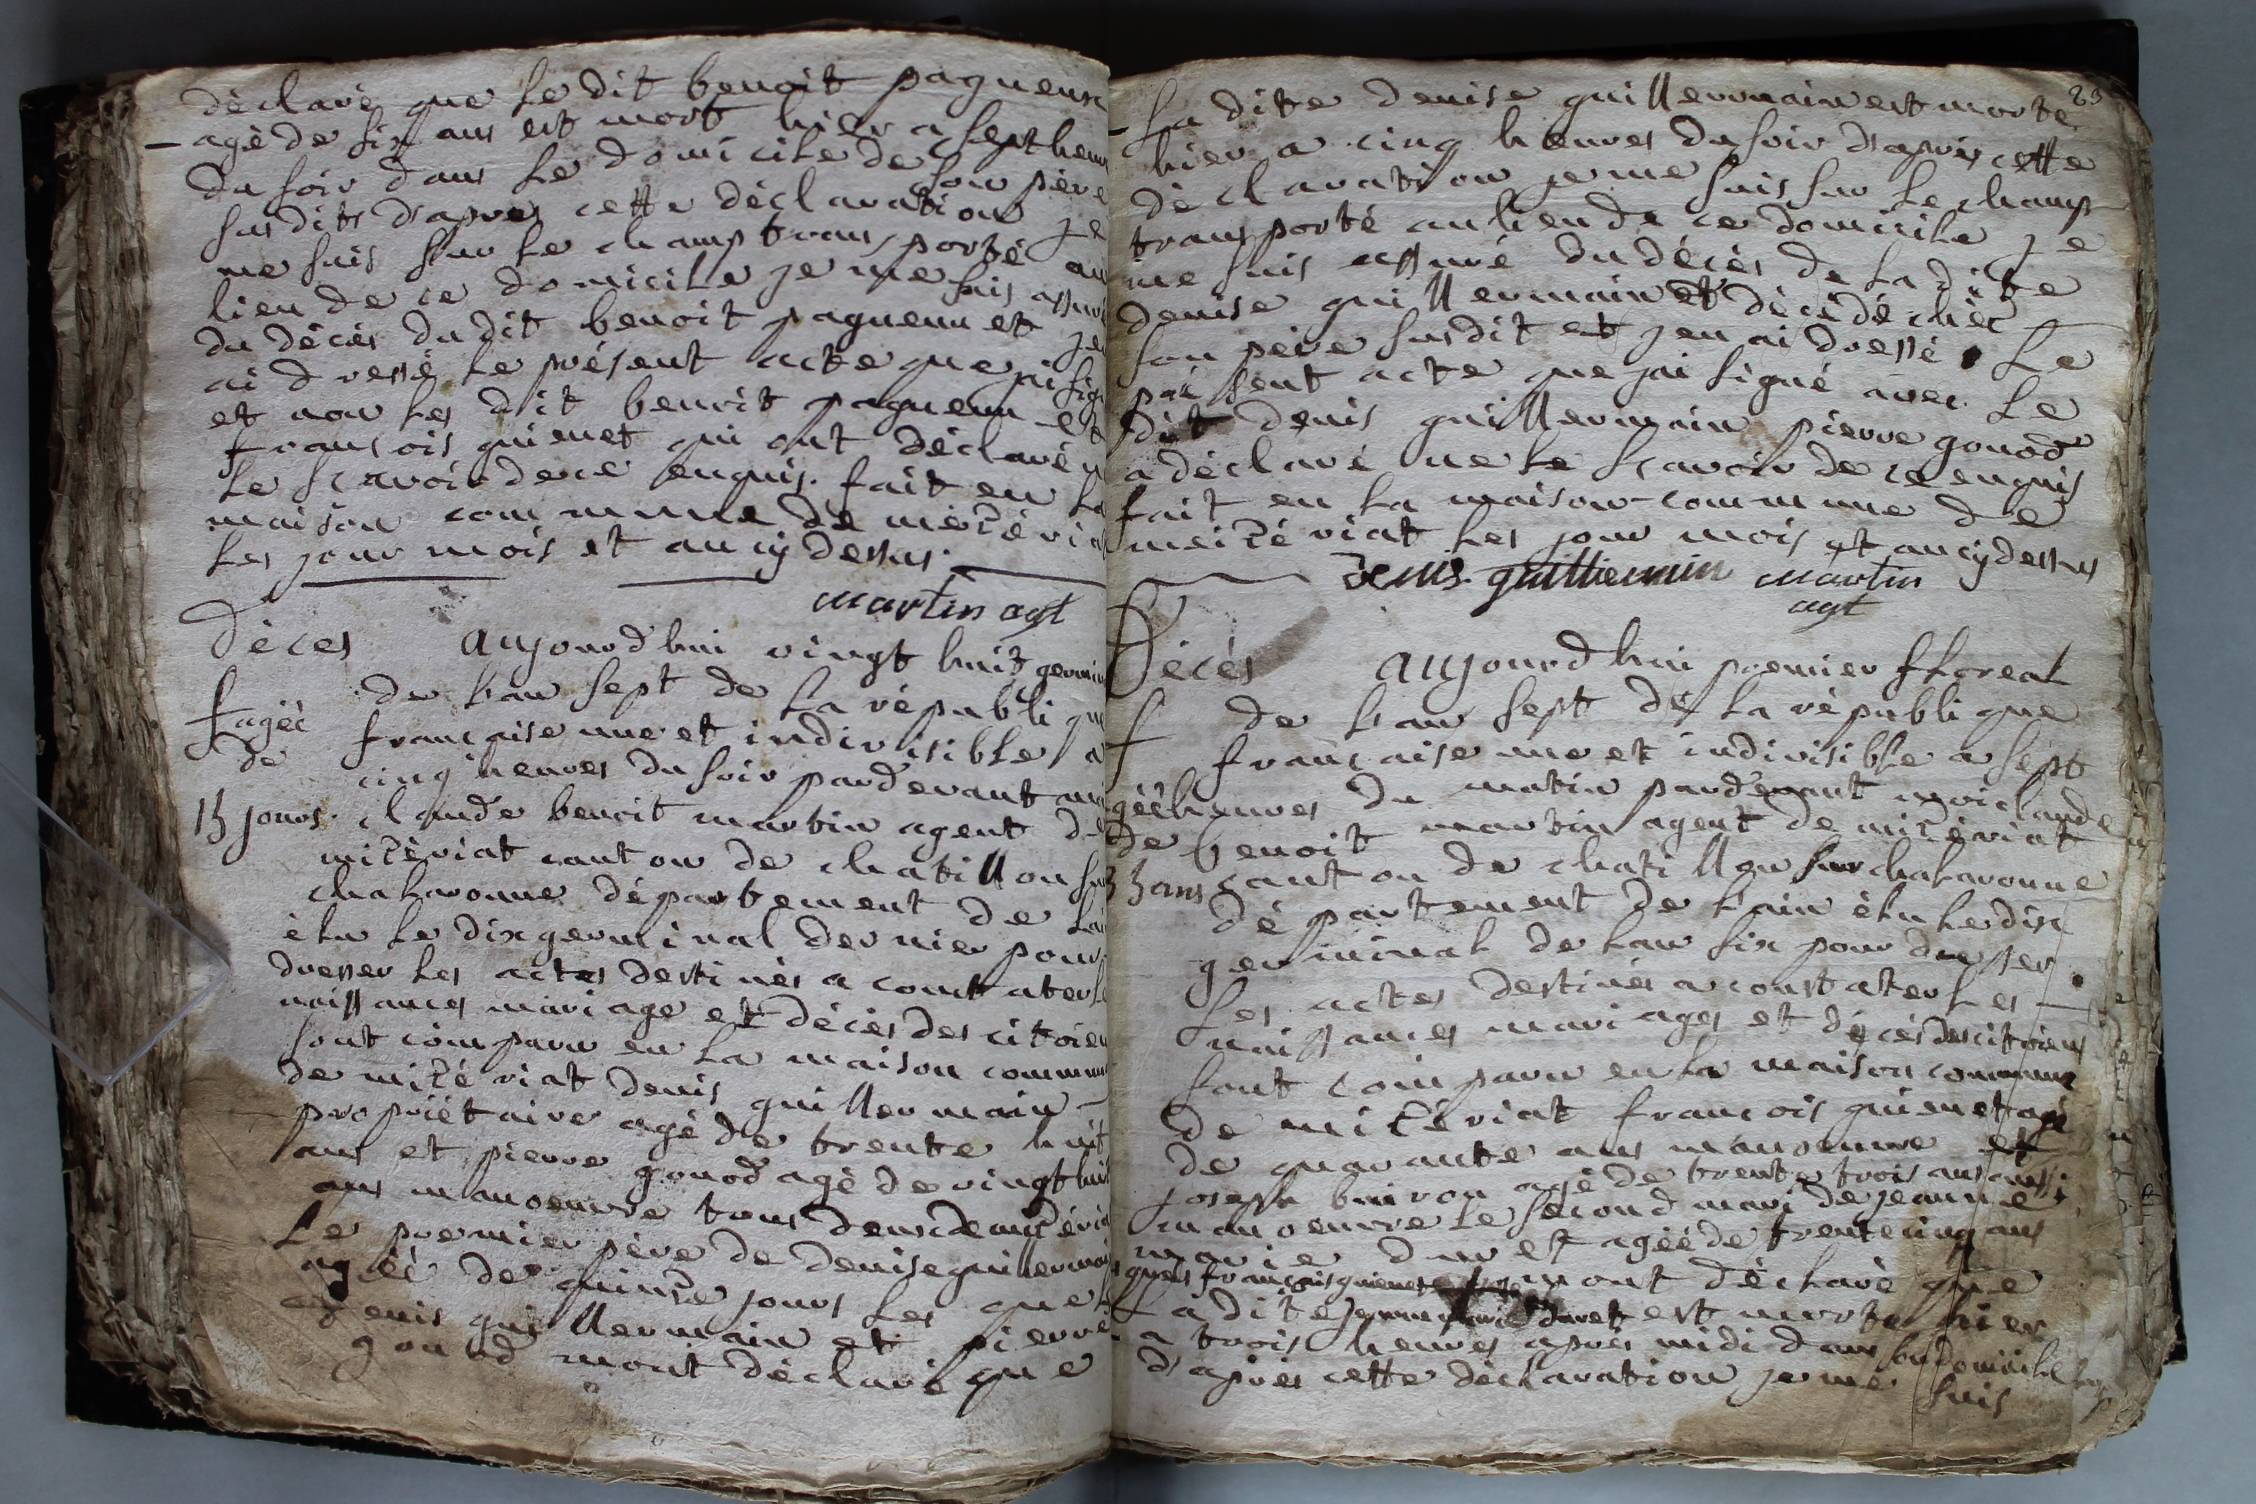 dèclaré que Le dit benoit pagneux
agè de six ans est mort hier a sept heur
Du soir dans Le domicile de son père
susdits d'apres cette dèclaration je
me suis sur Le champ transporté au
lieu de ce domicile je me suis assuré
du décès du dit benoit pagneux et jen
ai dressé Le présent acte que jai sign
et non Les dit benoit pagneux et
francois guienet qui ont dèclaré n
Le scavoir de ce enquis. fait en La
maison commune de mézériat
Les jour mois et an cy dessus.
martin agt
Dèces aujourd'hui vingt huit germin
de L'an sept de La république
f agéé française une et indivisible a
de cinq heures du soir pardevant mo
15 jours. claude benoit martin agent de
mizèriat canton de chatillon sur
chalaronne département de Lain
èlu Le dix germinal dernier pour
dresser Les actes destinés a constater Le
naissances mariage et décès des citoien
sont comparu en La maison commun
de mizériat denis guillermain
propriétaire agé de trente huit
ans et pierre gonod agè de vingt huit
ans manoeuvre tous deux de mizéria
Le premier père de denise guillermain
agéé de quinze jours Les quel
denis guillermain et pierre
gonod mont déclaré que
23
La dite denise guillermain est morte
hier a cinq heures du soir d'après cette
dèclaration je me suis sur Le champ
transporté au lieu de ce domicile je
me suis assuré du décès de La dite
denise guillermain et décédé chéz
son père susdit et jen ai dressé Le
présent acte que jai signé avec Le
dit denis guillermain pierre gonod
a déclaré ne Le scavoir de ce enquis
fait en La maison commune de
meizériat Les jour mois et an cy dessus
Denis guilliermin martin
agt
Décés aujourd'hui premier ffloreal
f de L'an sept de La république
française une et indivisible a sept
géé heures du matin pardevant moi claude
de benoit martin agent de mizèriat
35 ans canton de chatillon sur chalaronne
département de L'ain èlu Le dix
germinal de L'an six pour dresser
Les actes destinés a constater Les
naissances mariages et décés des citoiens
sont comparu en La maison commune
de mizériat francois guienet agé
de quarante ans manoeuvre et
joseph buiron agé de trente trois ans aussi
manoeuvre Le second mari de jeanne
marie duret agéé de trente cinq ans
quels francois guienet mont dèclaré que
La dite jeanne marie duret est morte hier
a trois heures après midi dans son domicile
d'après cette dèclaration je me suis